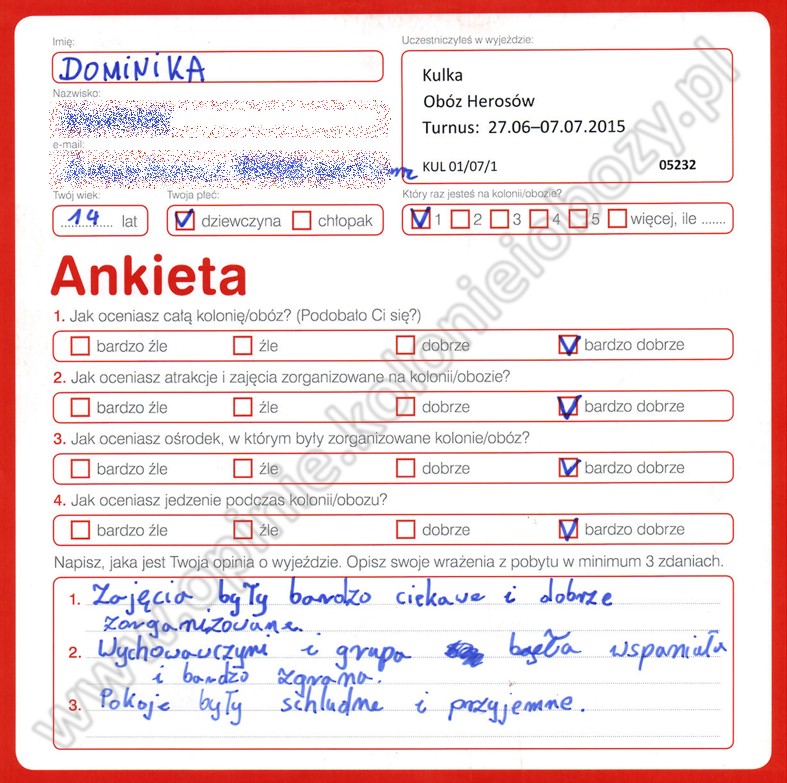 Imię:
DOMINIKA
Nazwisko:
e-mail:
Twój wiek:
14 lat
Twoja płeć:
dziewczyna chłopak
Uczestniczyłeś w wyjeździe:
Kulka
Obóz Herosów
Turnus: 27.06–07.07.2015
KUL 01/07/1 05232
Który raz jesteś na kolonii/obozie?
1 2 3 4 5 więcej, ile .......
Ankieta
1. Jak oceniasz całą kolonię/obóz? (Podobało Ci się?)
bardzo źle źle dobrze bardzo dobrze
2. Jak oceniasz atrakcje i zajęcia zorganizowane na kolonii/obozie?
bardzo źle źle dobrze bardzo dobrze
3. Jak oceniasz ośrodek, w którym były zorganizowane kolonie/obóz?
bardzo źle źle dobrze bardzo dobrze
4. Jak oceniasz jedzenie podczas kolonii/obozu?
bardzo źle źle dobrze bardzo dobrze
Napisz, jaka jest Twoja opinia o wyjeździe. Opisz swoje wrażenia z pobytu w minimum 3 zdaniach.
1. Zajęcia były bardzo ciekawe i dobrze
zorganizowane.
2. Wychowawczyni i grupa była wspaniała
i bardzo zgrana.
3. Pokoje były schludne i przyjemne.
www.opinie.kolonieiobozy.pl